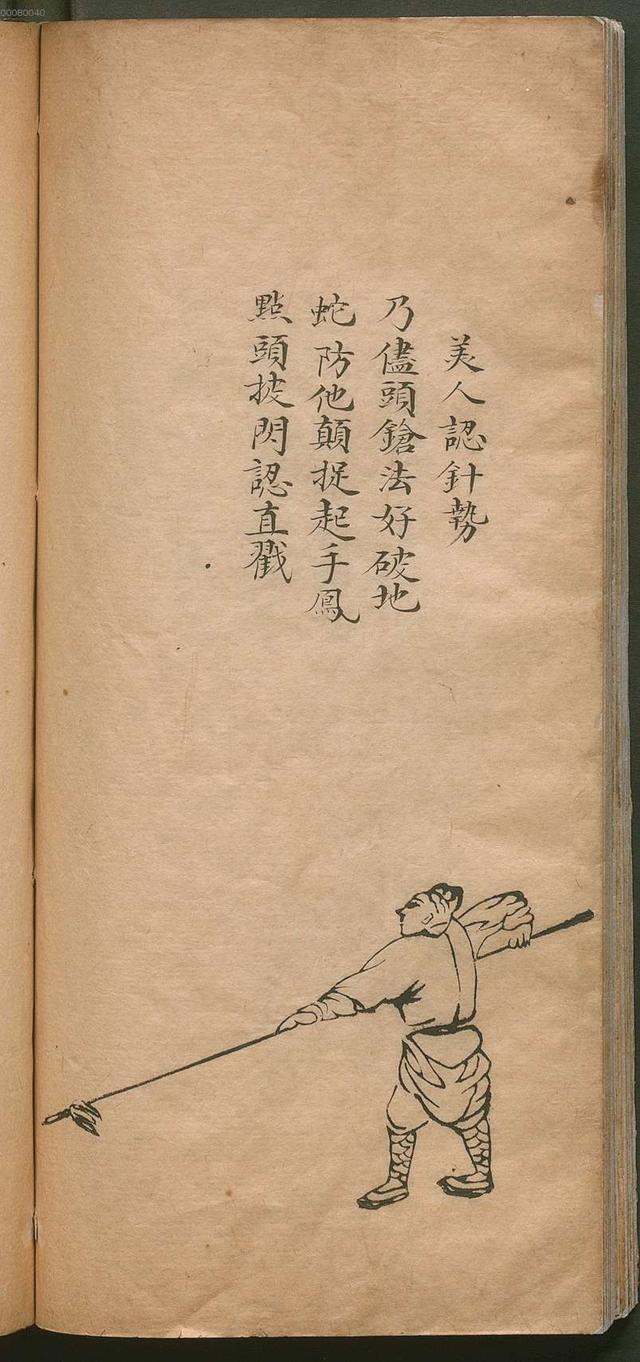 00080040
美人認針勢
乃儘頭鎗法好破地
蛇防他顛捉起手鳳
點頭披閃認直戳